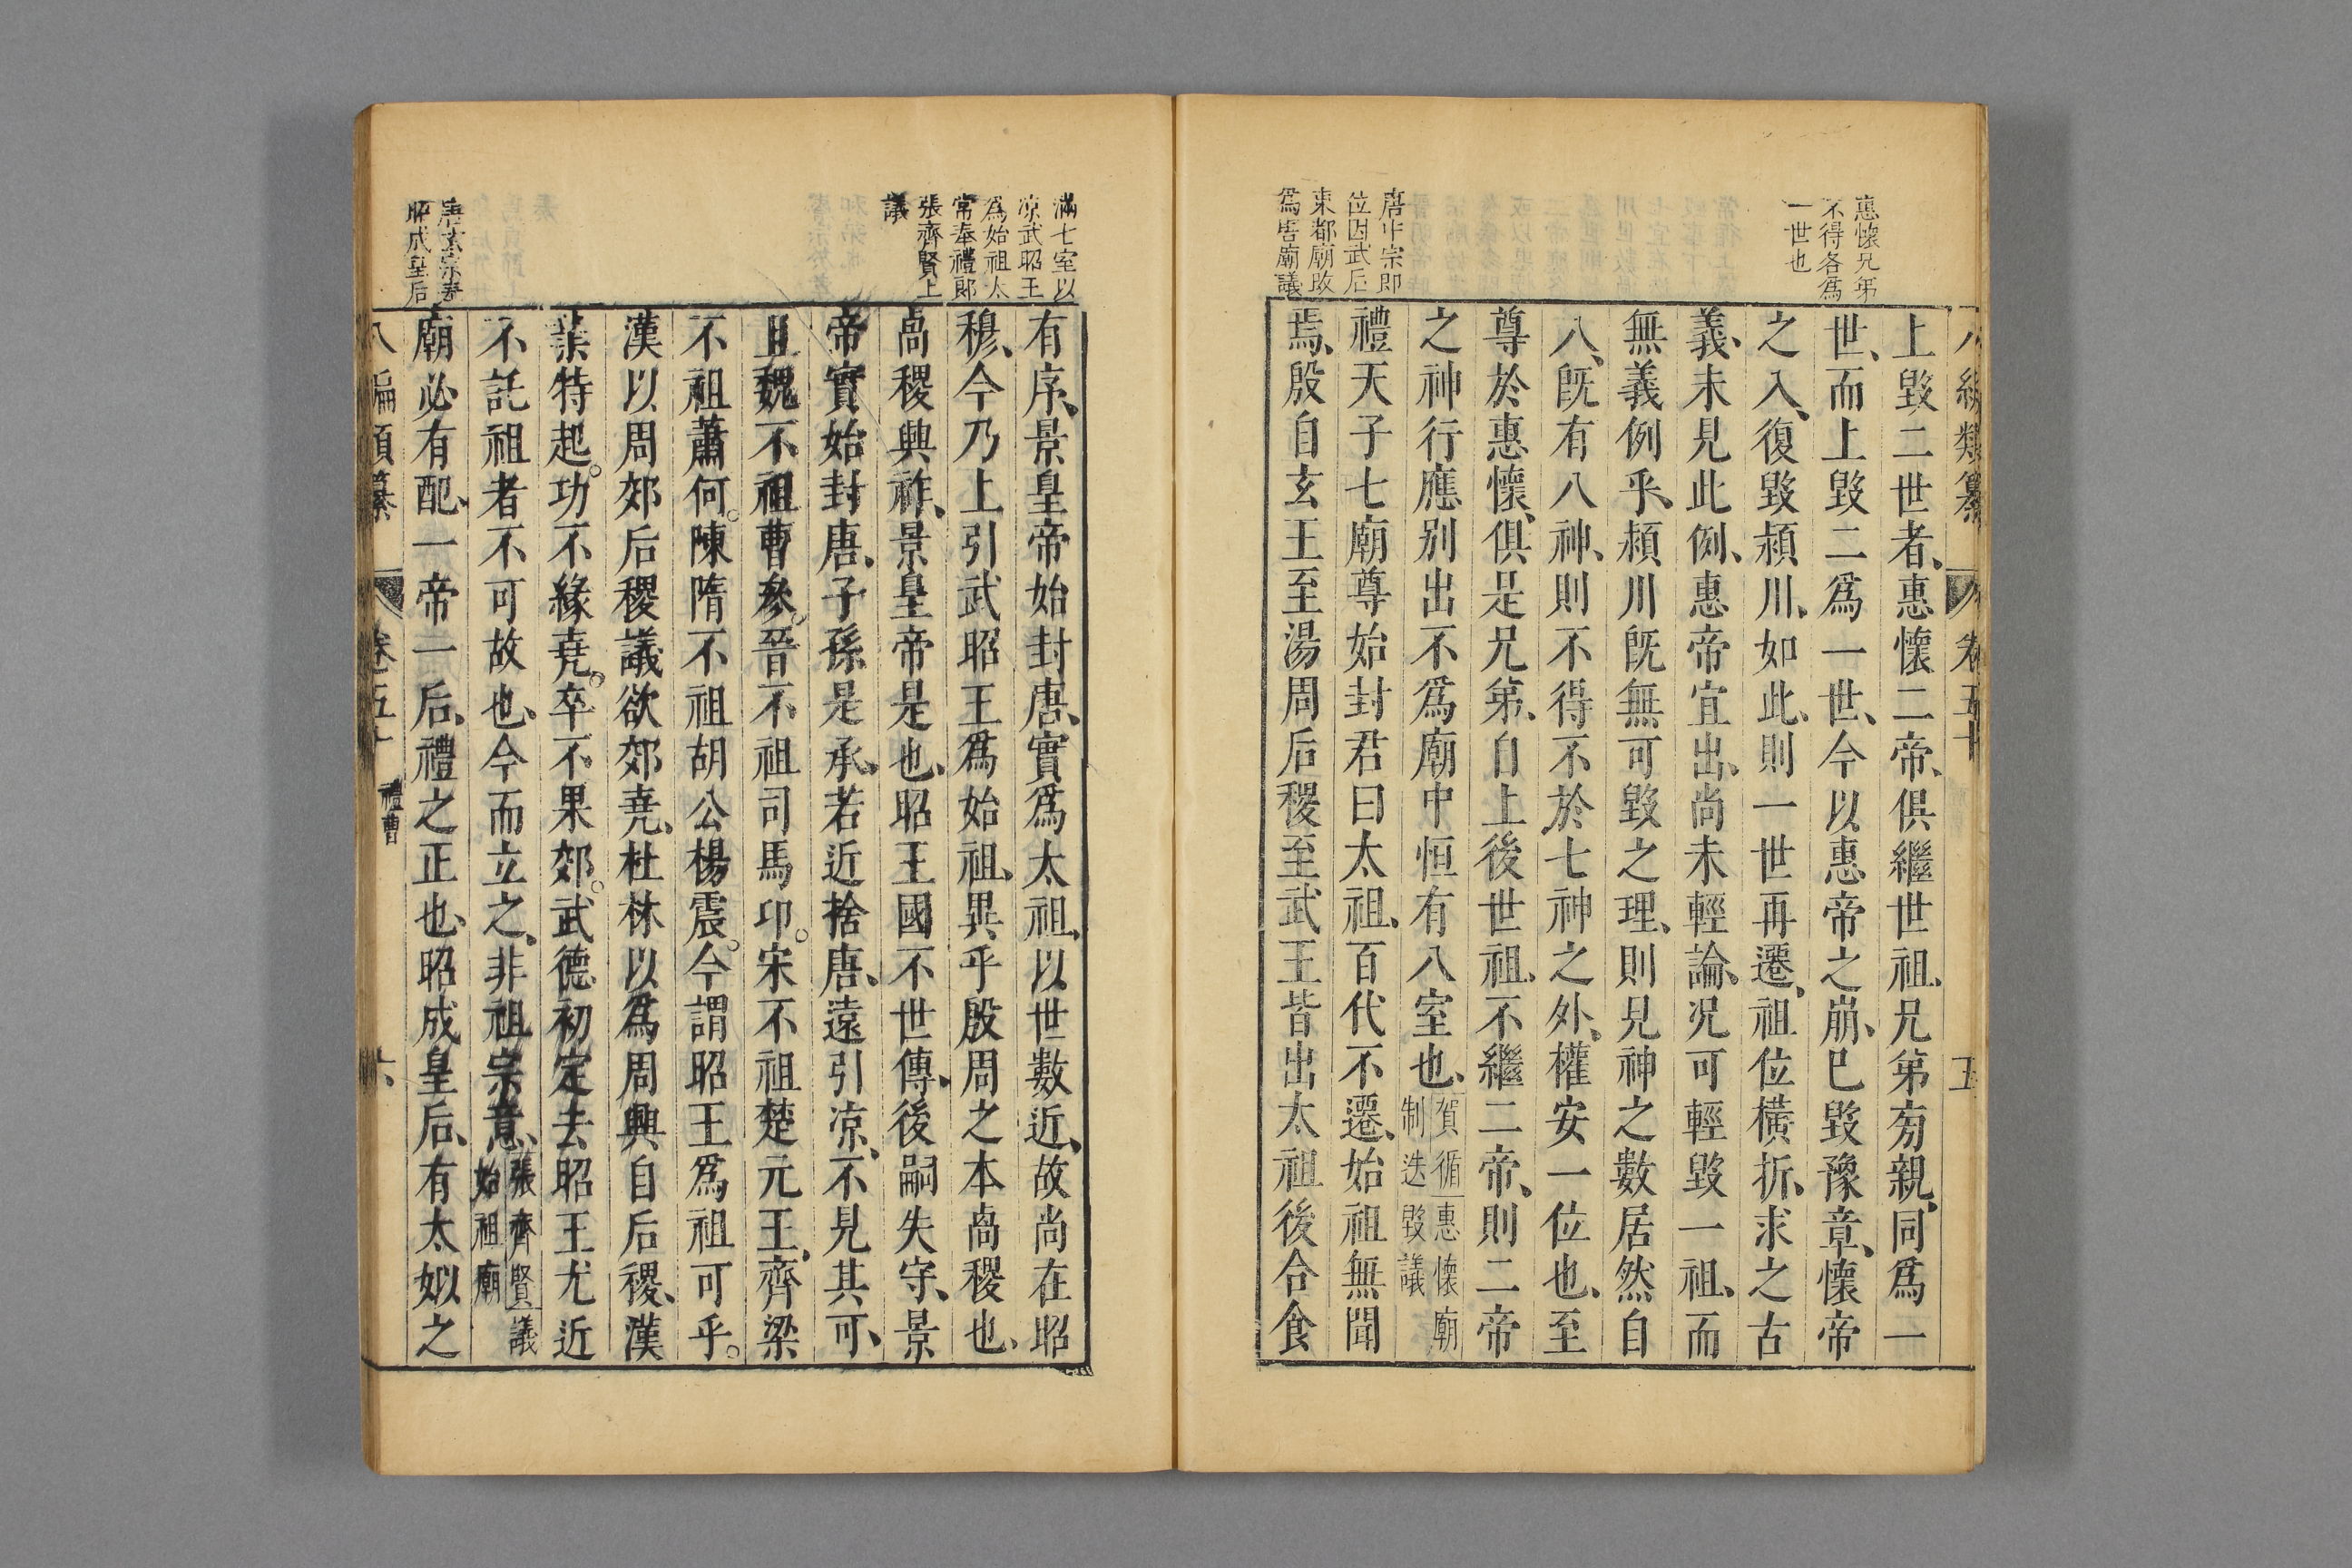 八編類纂 卷五十 五
惠懷兄第
不得各爲
一世也
上毀二世者惠懷二帝俱繼世祖兄第旁親同爲一
世而上毀二爲一世今以惠帝之崩巳毀豫章懷帝
之入復毀頴川如此則一世再遷祖位橫折求之古
義未見此例惠帝宜出尚未輕論况可輕毀一祖而
無義例乎頴川旣無可毀之理則見神之數居然自
八旣有八神則不得不於七神之外權安一位也至
尊於惠懷俱是兄第自上後世祖不繼二帝則二帝
之神行應别出不爲廟中恒有八室也賀循惠懷廟
制迭毀議
唐中宗即
位因武后
東都廟改
爲唐廟議
禮天子七廟尊始封君曰太祖百代不遷始祖無聞
焉殷自玄王至湯周后稷至武王皆出太祖後合食
滿七室以
凉武昭王
爲始祖太
常奉禮郞
張齊賢上
議
有序景皇帝始封唐實爲太祖以世數近故尚在昭
穆今乃上引武昭王爲始祖異乎殷周之本卨稷也
卨稷興祚景皇帝是也昭王國不世傳後嗣失守景
帝實始封唐子孫是承若近捨唐遠引凉不見其可
且魏不祖曹參晉不祖司馬卬宋不祖楚元王齊梁
不祖蕭何陳隋不祖胡公楊震今謂昭王爲祖可乎
漢以周郊后稷議欲郊堯杜林以爲周興自后稷漢
業特起功不緣堯卒不果郊武德初定去昭王尤近
不託祖者不可故也今而立之非祖宗意張齊賢議
始祖廟
唐玄宗奉
昭成皇后
廟必有配一帝一后禮之正也昭成皇后有太姒之
八編類纂 卷五十 禮曹 六